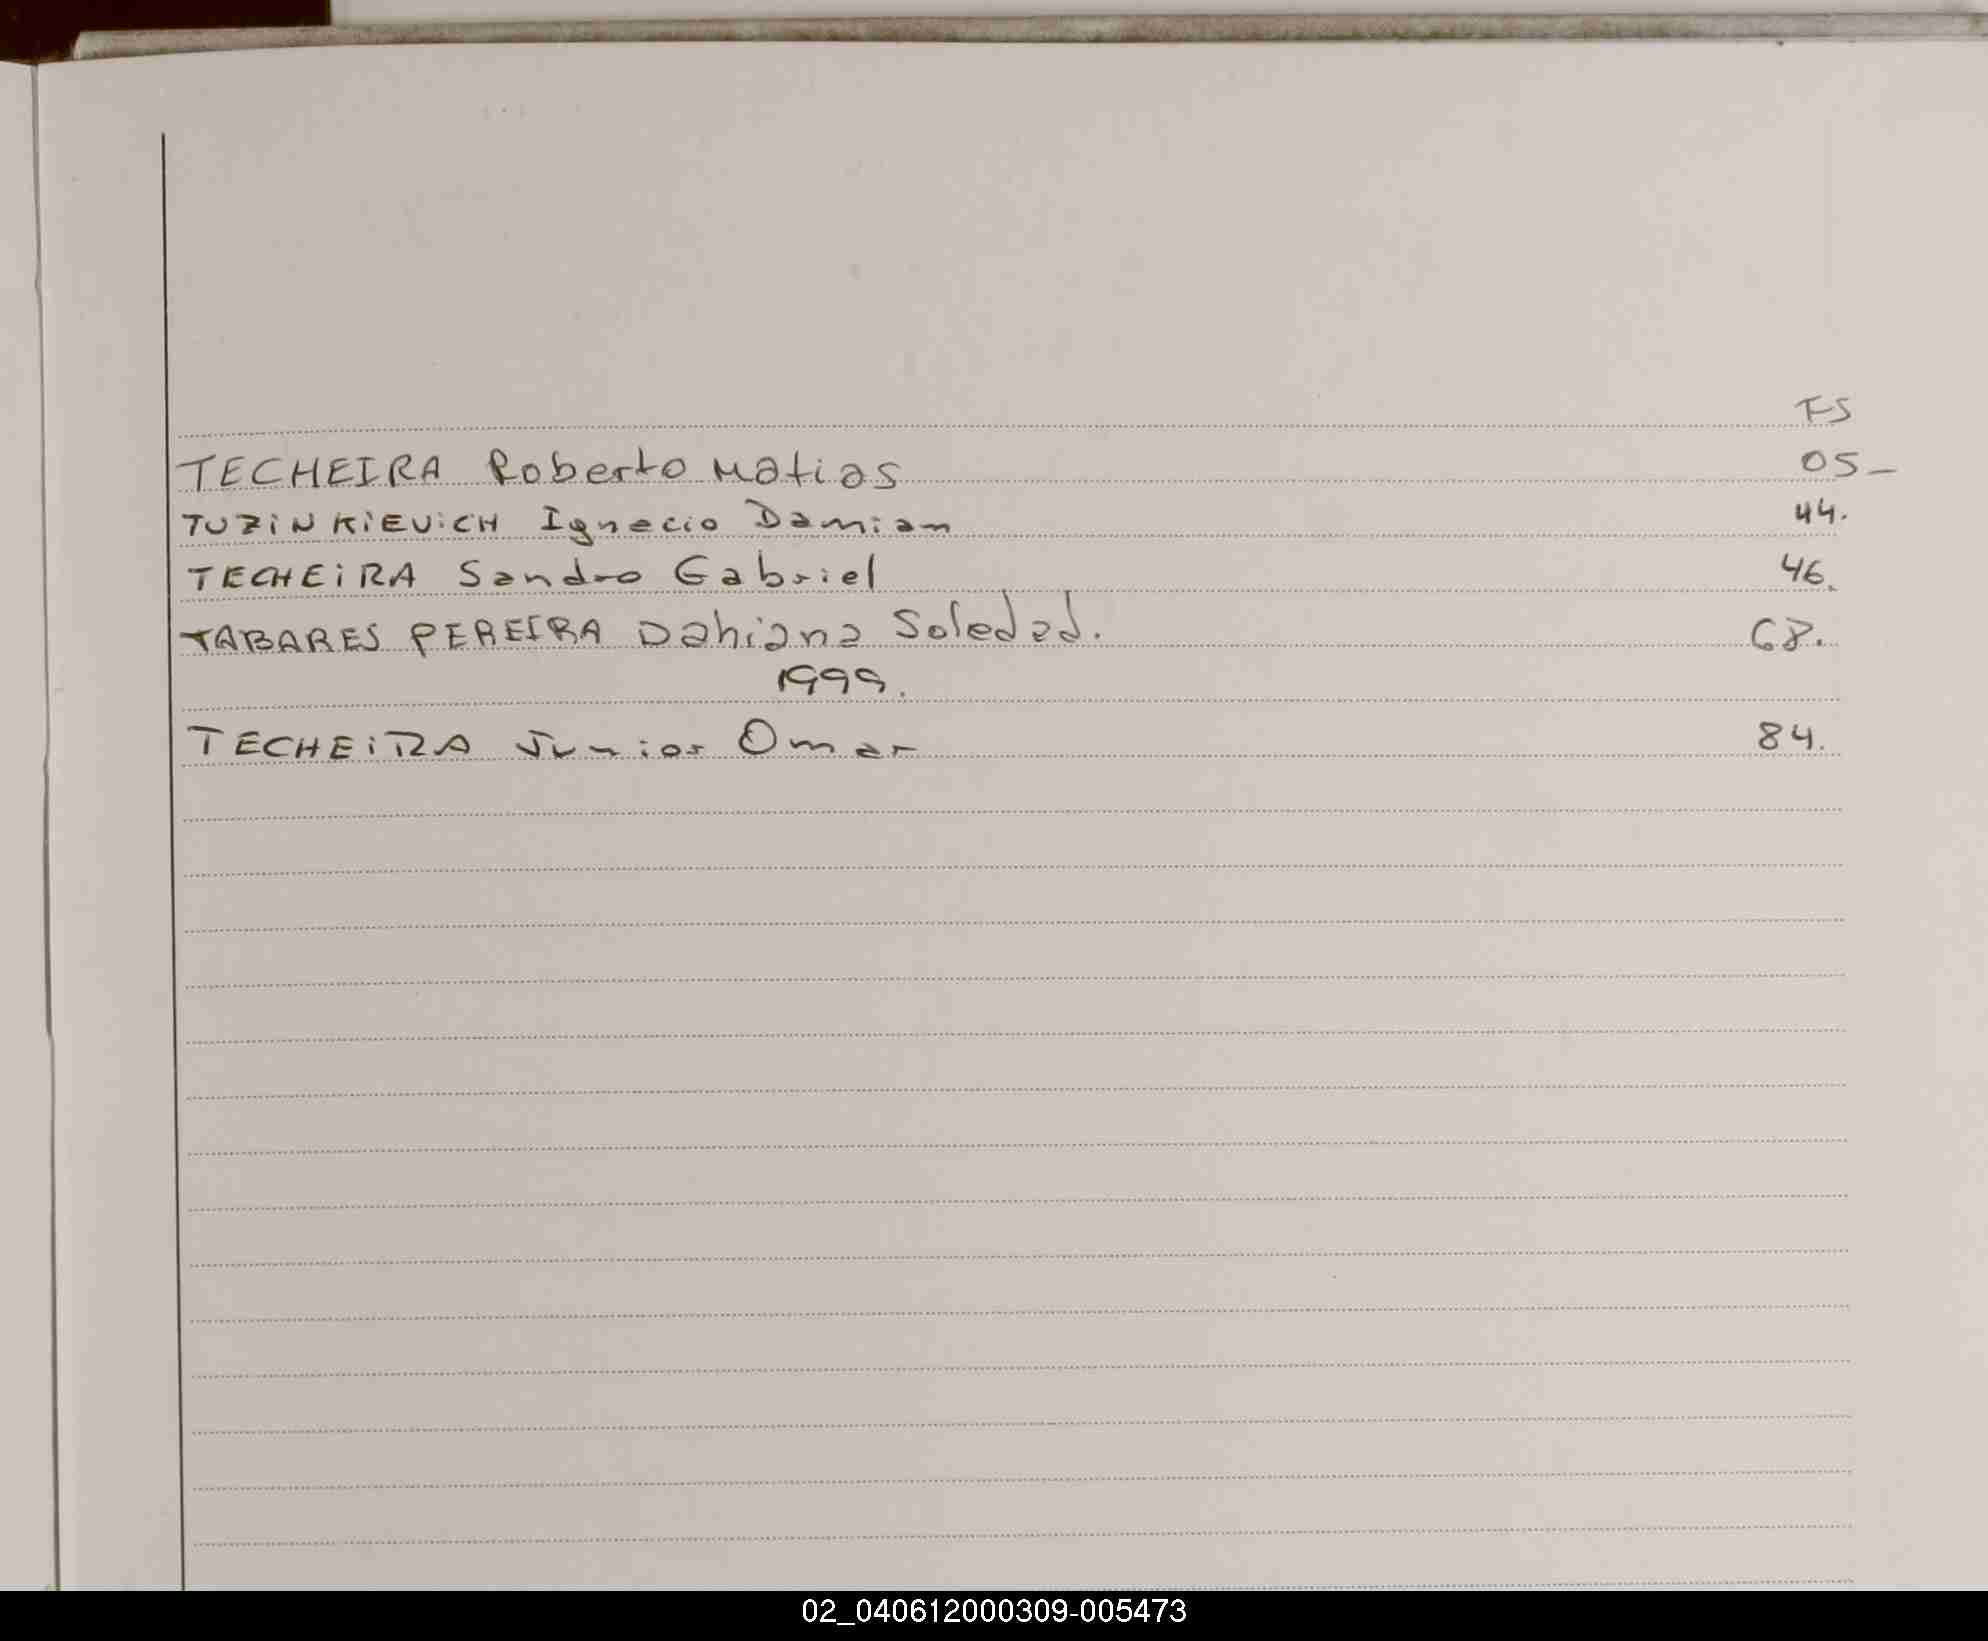 FS
TECHEIRA Roberto Matias 05-
TUZINKIEVICH Ignacio Damian 44.
TECHEIRA Sandro Gabriel 46.
TABARES PEREIRA Dahiana Soledad. 68.
1999.
TECHEIRA Junior Omar 84.
02_040612000309-005473